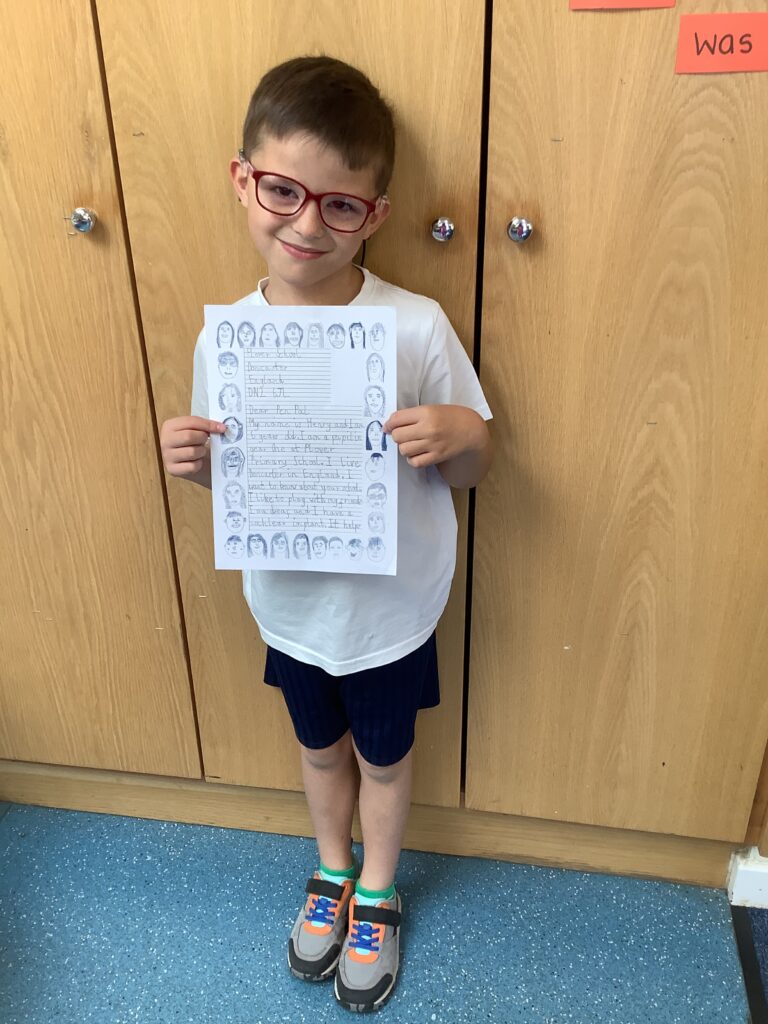 was
Plover School
Doncaster
England
DN2 6JL
Dear Pen Pal
My name is Henry and I am
year old. I am a pupil in
year one at Plover
Primary School. I live
Doncaster in England. I
want to know about your school.
I like to play with my
I am deaf and I have a
cochlear implant. It help